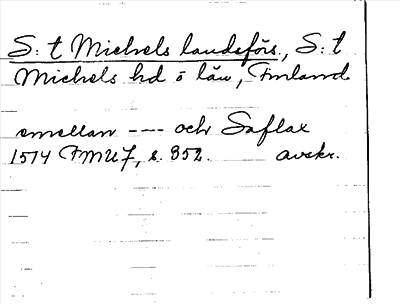 S:t Michels landsförs., S:t
Michels hd o län, Finland
emellan ---- och Saflax
1514 FMU7, s. 352. avskr.